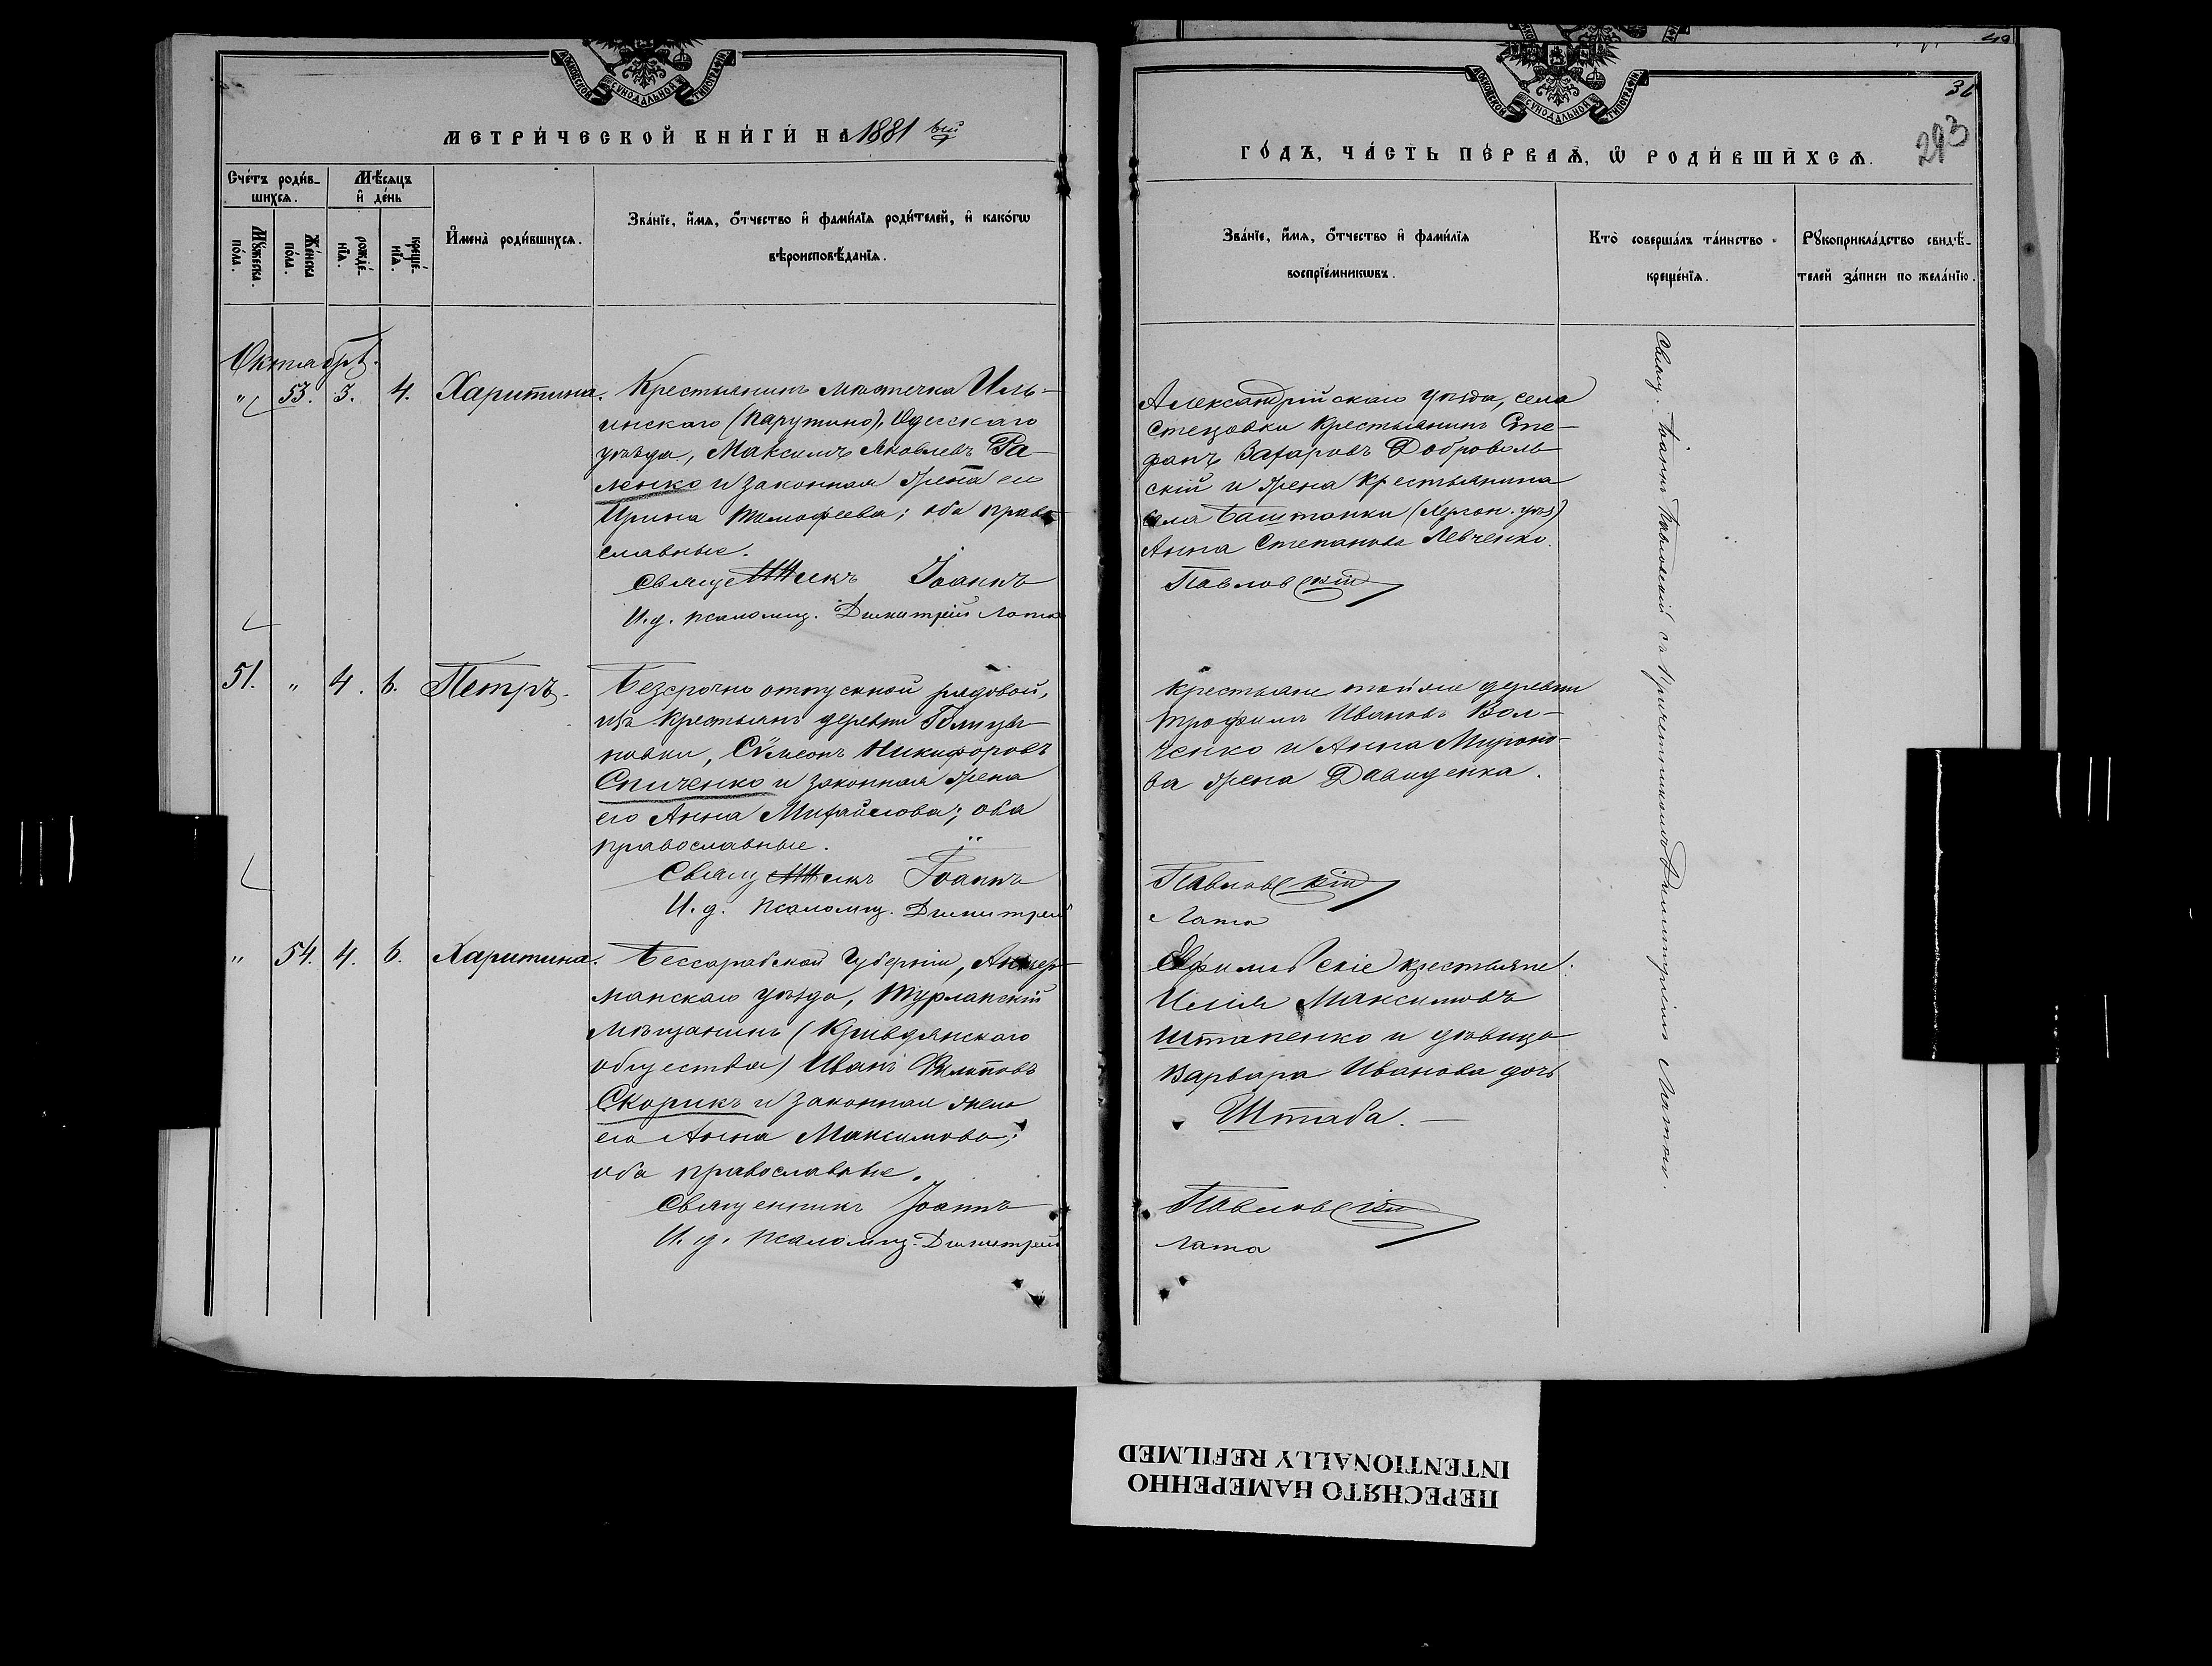 МОСКОВСКОЙ СУНОДАЛЬНОЙ ТИПОГРАФІИ
МЕТРИ́ЧЕСКОЙ КНИ́ГИ НА 1881 вый
Сче́тъ роди́в-
шихсѧ.
Мѣ́сѧцъ
и де́нь
Мꙋ́жеска
по́ла.
Же́нска
по́ла.
рожде́-
нїѧ.
креще́-
нїѧ.
Имена̀ роди́вшихсѧ.
Зва́нїе, и́мѧ, о́тчество и фами́лїѧ роди́телей, и како́гѡ
вѣроисповѣ́данїѧ.
Октябрь.
" 53. 3. 4. Харитина.
Крестьянинъ мѣстечка Иль-
инскаго (Парутино), Одесскаго
уѣзда, Максимъ Яковлевъ Га-
ленко и законная жена его
Ирина Тимофеева; оба право-
славные.
Священникъ Іоаннъ
И.д. псаломщ. Димитрій Лата
51. " 4. 6. Петръ.
Безсрочно отпускной рядовой,
изъ крестьянъ деревни Голицы-
новки, Сѵмеонъ Никифоровъ
Спиченко и законная жена
его Анна Михайлова; оба
православные.
Священникъ Іоаннъ
И.д. псаломщ. Димитрій
" 54. 4. 6. Харитина.
Бессарабской Губерніи, Аккер-
манскаго уѣзда, Турлакскій
мѣщанинъ (Кривдянскаго
общества) Иванъ Филиповъ
Скорикъ и законная жена
его Анна Максимова;
оба православные.
Священникъ Іоаннъ
И.д. псаломщ. Димитрій
МОСКОВСКОЙ СУНОДАЛЬНОЙ ТИПОГРАФІИ
293
ГО́ДЪ, ЧА́СТЬ ПЕ́РВАѦ, Ѡ РОДИ́ВШИХСѦ.
Зва́нїе, и́мѧ, о́тчество и фами́лїѧ
воспрїе́мникѡвъ.
Кто̀ соверша́лъ та́инство
креще́нїѧ.
Рꙋкоприкла́дство свидѣ́-
телей за́писи по жела́нїю.
Александрійскаго уѣзда, села
Стецовки крестьянинъ Сте-
фанъ Захаровъ Доброволь-
скій и жена крестьянина
села Баштанки (Херсон. уѣз)
Анна Степанова Левченко.
Павловскій
Крестьяне той же деревни
Трофимъ Ивановъ Вол-
ченко и Анна Мироно-
ва жена Давиденка.
Павловскій
Лата
Ефимовскіе крестьяне:
Илія Максимовъ
Штапенко и дѣвица
Варвара Иванова дочь
Штаба.
Павловскій
Лата
Свящ. Іоаннъ Павловскій съ Причетникомъ Димитріемъ Латою.
ПЕРЕСНЯТО НАМЕРЕННО
INTENTIONALLY REFILMED